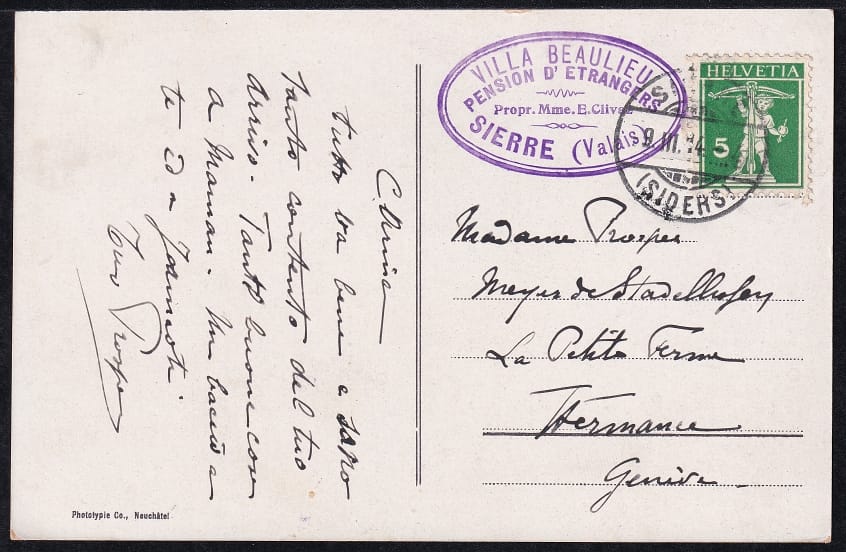 C. Anna
tutto va bene e sono
tanto contento del tuo
arrivo. Tante buone cose
a Maman. Un bacio a
te ed a
Tuo Prosper
Phototypie Co., Neuchâtel
VILLA BEAULIEU
PENSION D'ETRANGERS
Propr. Mme. E. Clivaz
SIERRE (Valais)
HELVETIA
5
9.III.14
(SIDERS)
Madame Prosper
Meyer de Stadelhofen
La Petite Ferme
Hermance
Genève